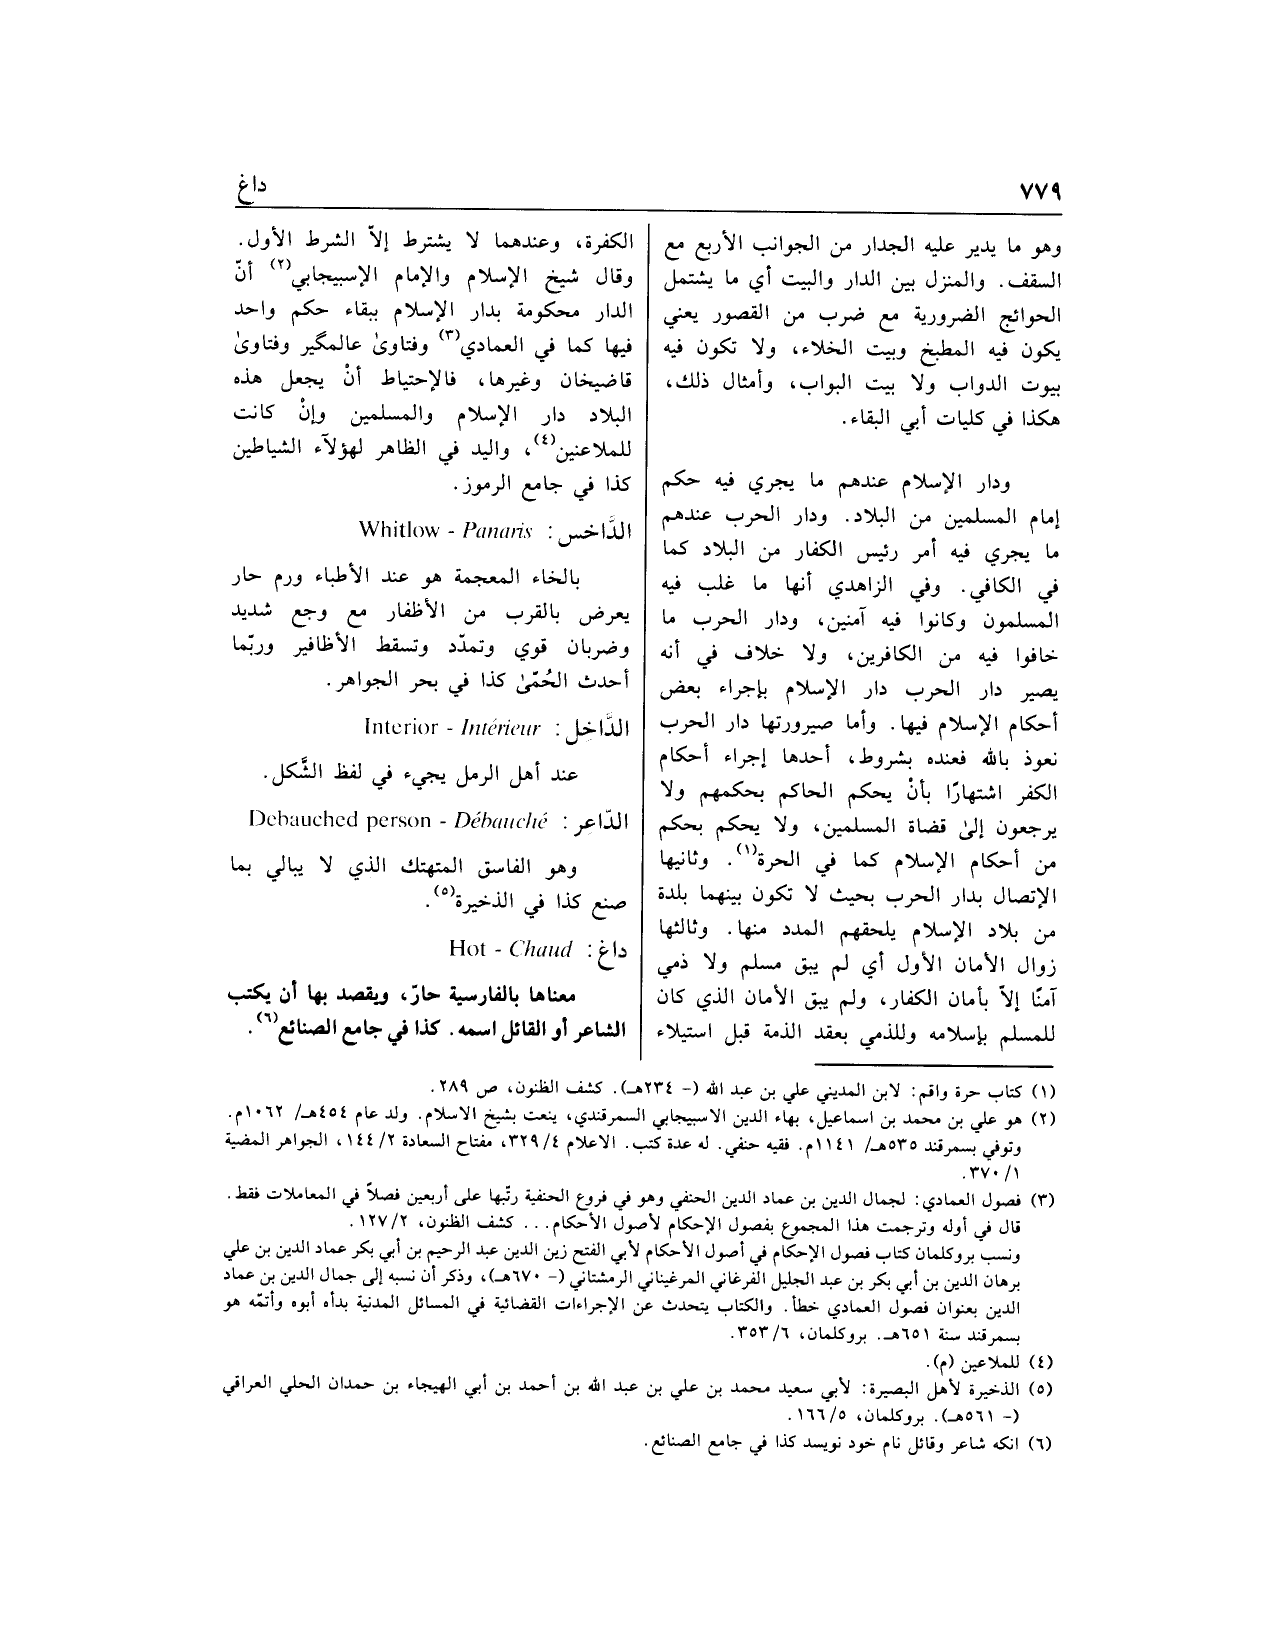 ٧٧٩
داغ
وهو ما يدير عليه الجدار من الجوانب الأربع مع
السقف. والمنزل بين الدار والبيت أي ما يشتمل
الحوائج الضرورية مع ضرب من القصور يعني
يكون فيه المطبخ وبيت الخلاء، ولا تكون فيه
بيوت الدواب ولا بيت البواب، وأمثال ذلك،
هكذا في كليات أبي البقاء.
ودار الإسلام عندهم ما يجري فيه حكم
إمام المسلمين من البلاد. ودار الحرب عندهم
ما يجري فيه أمر رئيس الكفار من البلاد كما
في الكافي. وفي الزاهدي أنها ما غلب فيه
المسلمون وكانوا فيه آمنين، ودار الحرب ما
خافوا فيه من الكافرين، ولا خلاف في أنه
يصير دار الحرب دار الإسلام بإجراء بعض
أحكام الإسلام فيها. وأما صيرورتها دار الحرب
نعوذ بالله فعنده بشروط، أحدها إجراء أحكام
الكفر اشتهارًا بأنْ يحكم الحاكم بحكمهم ولا
يرجعون إلىٰ قضاة المسلمين، ولا يحكم بحكم
من أحكام الإسلام كما في الحرة(١). وثانيها
الإتصال بدار الحرب بحيث لا تكون بينهما بلدة
من بلاد الإسلام يلحقهم المدد منها. وثالثها
زوال الأمان الأول أي لم يبق مسلم ولا ذمي
آمنًا إلاّ بأمان الكفار، ولم يبق الأمان الذي كان
للمسلم بإسلامه وللذمي بعقد الذمة قبل استيلاء
الكفرة، وعندهما لا يشترط إلاّ الشرط الأول.
وقال شيخ الإسلام والإمام الإسبيجابي(٢) أنّ
الدار محكومة بدار الإسلام ببقاء حكم واحد
فيها كما في العمادي(٣) وفتاوىٰ عالمگير وفتاوىٰ
قاضيخان وغيرها، فالإحتياط أنْ يجعل هذه
البلاد دار الإسلام والمسلمين وإنْ كانت
للملاعنين(٤)، واليد في الظاهر لهؤلآء الشياطين
كذا في جامع الرموز.
الدَّاخس: Whitlow - Panaris
بالخاء المعجمة هو عند الأطباء ورم حار
يعرض بالقرب من الأظفار مع وجع شديد
وضربان قوي وتمدّد وتسقط الأظافير وربّما
أحدث الحُمّىٰ كذا في بحر الجواهر.
الدَّاخِل: Interior - Intérieur
عند أهل الرمل يجيء في لفظ الشَّكل.
الدّاعر: Debauched person - Débauché
وهو الفاسق المتهتك الذي لا يبالي بما
صنع كذا في الذخيرة(٥).
داغ: Hot - Chaud
معناها بالفارسية حارّ، ويقصد بها أن يكتب
الشاعر أو القائل اسمه. كذا في جامع الصنائع(٦).
(١) كتاب حرة واقم: لابن المديني علي بن عبد الله (- ٢٣٤هـ). كشف الظنون، ص ٢٨٩.
(٢) هو علي بن محمد بن اسماعيل، بهاء الدين الاسبيجابي السمرقندي، ينعت بشيخ الاسلام. ولد عام ٤٥٤هـ/ ١٠٦٢م.
وتوفي بسمرقند ٥٣٥هـ/ ١١٤١م. فقيه حنفي. له عدة كتب. الاعلام ٤/ ٣٢٩، مفتاح السعادة ٢/ ١٤٤، الجواهر المضية
١/ ٣٧٠.
(٣) فصول العمادي: لجمال الدين بن عماد الدين الحنفي وهو في فروع الحنفية رتّبها على أربعين فصلاً في المعاملات فقط.
قال في أوله وترجمت هذا المجموع بفصول الإحكام لأصول الأحكام... كشف الظنون، ٢/ ١٢٧.
ونسب بروكلمان كتاب فصول الإحكام في أصول الأحكام لأبي الفتح زين الدين عبد الرحيم بن أبي بكر عماد الدين بن علي
برهان الدين بن أبي بكر بن عبد الجليل الفرغاني المرغيناني الرمشتاني (- ٦٧٠هـ)، وذكر أن نسبه إلى جمال الدين بن عماد
الدين بعنوان فصول العمادي خطأ. والكتاب يتحدث عن الإجراءات القضائية في المسائل المدنية بدأه أبوه وأتمّه هو
بسمرقند سنة ٦٥١هـ. بروكلمان، ٦/ ٣٥٣.
(٤) للملاعين (م).
(٥) الذخيرة لأهل البصيرة: لأبي سعيد محمد بن علي بن عبد الله بن أحمد بن أبي الهيجاء بن حمدان الحلي العراقي
(- ٥٦١هـ). بروكلمان، ٥/ ١٦٦.
(٦) انكه شاعر وقائل نام خود نويسد كذا في جامع الصنائع.